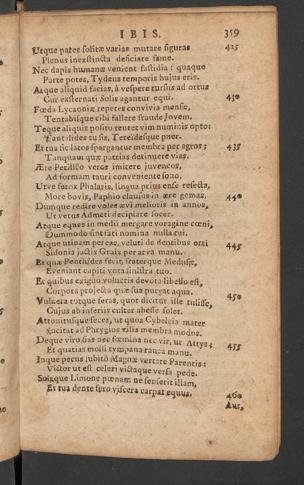 IBIS. 359
Utque pater solitæ varias mutare figuras 425
Plenus inexstincta deficiare fame.
Nec dapis humanæ venient fastidia: quaque
Parte potes, Tydeus temporis hujus eris.
Atque aliquid facias, à vespere rursus ad ortus
Cur exsternati Solis agantur equi. 430
Fœda Lycaoniæ repetes convivia mensæ,
Tentabisque cibi fallere fraude Jovem.
Teque aliquis posito tentet vim numinis opto:
Tantalides tu sis, Tereidesque puer.
Et tua sic latos spargantur membra per agros; 435
Tanquam quæ patrias detinuere vias.
Ære Perillêo veros imitere juvencos,
Ad formam tauri conveniente sono.
Utve ferox Phalaris, lingua prius ense resecta,
More bovis, Paphio clausus in ære gemas. 440
Dumque redire voles ævi melioris in annos,
Ut vetus Admeti decipiare socer.
Atque eques in medii mergare voragine cœni,
Dummodo sint fati nomina nulla tui.
Atque utinam pereas, veluti de dentibus orti 445
Sidonia jactis Graia per arva manu.
Et quæ Penthides fecit, fraterque Medusæ,
Eveniant capiti vota sinistra tuo.
Et quibus exiguo volucris devota libello est,
Corpora projecta quæ sua purgat aqua. 450
Vulnera totque feras, quot dicitur ille tulisse,
Cujus ab inferiis culter abesse solet.
Attonitusque seces, ut quos Cybeleïa mater
Incitat ad Phrygios vilia membra modos.
Deque viro fias nec fœmina nec vir, ut Attys; 455
Et quatias molli tympana rauca manu.
Inque pecus subitò Magnæ vertare Parentis:
Victor ut est celeri victaque versa pede.
Solaque Limone pœnam ne senserit illam,
Et tua dente fero viscera carpat equus. 460
Aut,